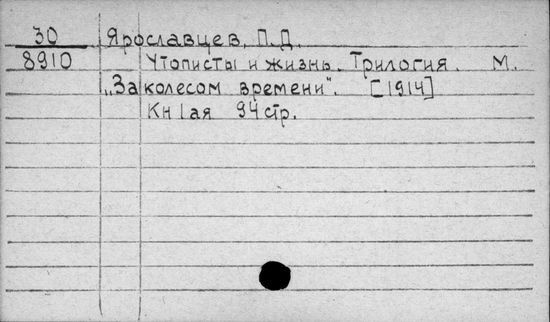 30 Ярославцев, П.Д.
8910 Утописты и жизнь. Трилогия. М.
„За колесом времени". [1914]
Кн 1ая 94 стр.